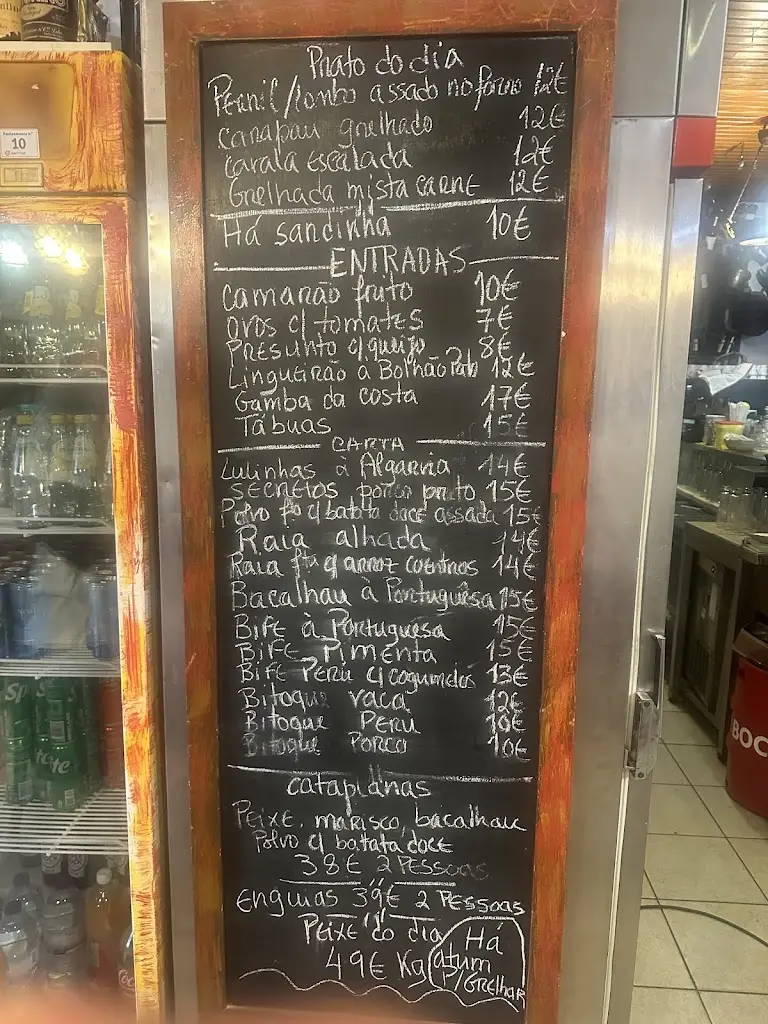 10
Prato do dia
Pernil/lombo assado no forno 12€
Carapau grelhado 12€
Cavala escalada 12€
Grelhada mista CARNE 12€
Há sardinha 10€
ENTRADAS
Camarão frito 10€
Ovos c/ tomates 7€
PRESUNTO c/queijo 8€
Lingueirão à Bolhão Pato 12€
Gamba da costa 17€
Tábuas 15€
CARTA
Lulinhas à Algarvia 14€
Secretos porco preto 15€
Polvo fto c/ batata doce assada 15€
Raia alhada 14€
Raia fta c/ arroz coentros 14€
Bacalhau à Portuguêsa 15€
Bife à Portuguesa 15€
Bife Pimenta 15€
Bife Peru c/ cogumelos 13€
Bitoque vaca 12€
Bitoque Peru 10€
Bitoque Porco 10€
Cataplanas
Peixe, marisco, bacalhau
Polvo c/ batata doce
38€ 2 PESSOAS
Enguias 39€ 2 PESSOAS
Peixe do dia
49€ Kg
Há
atum
P/GRelhar
BOC